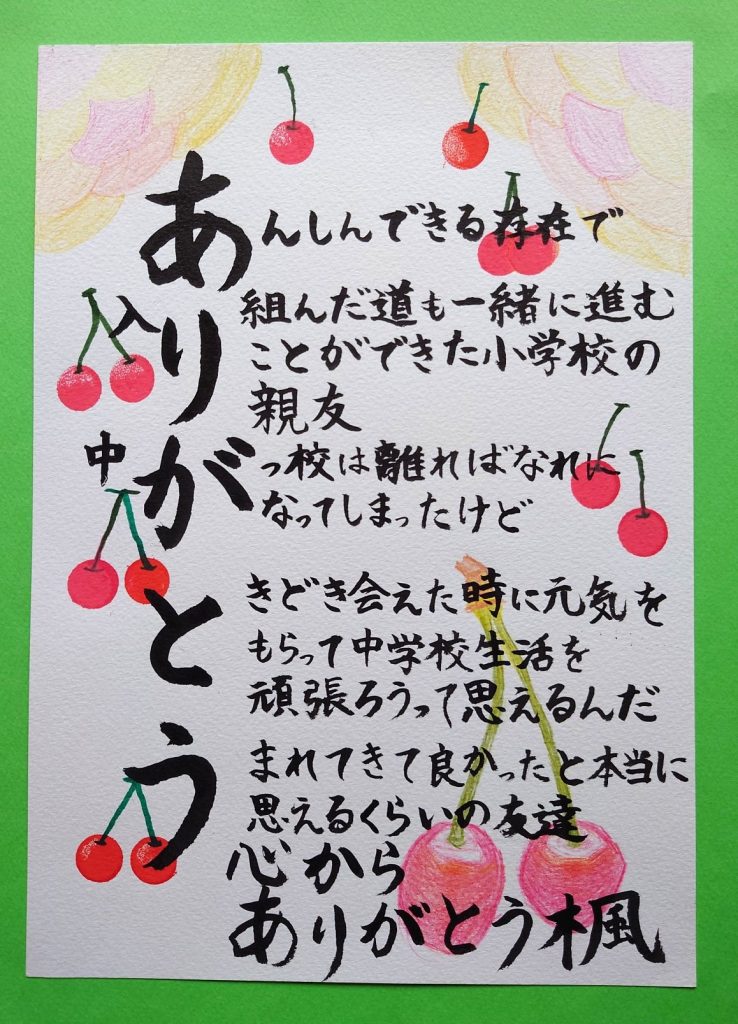 あんしんできる存在で
入り組んだ道も一緒に進む
ことができた小学校の
親友
中がっ校は離ればなれに
なってしまったけど
ときどき会えた時に元気を
もらって中学校生活を
頑張ろうって思えるんだ
うまれてきて良かったと本当に
思えるくらいの友達
心から
ありがとう楓